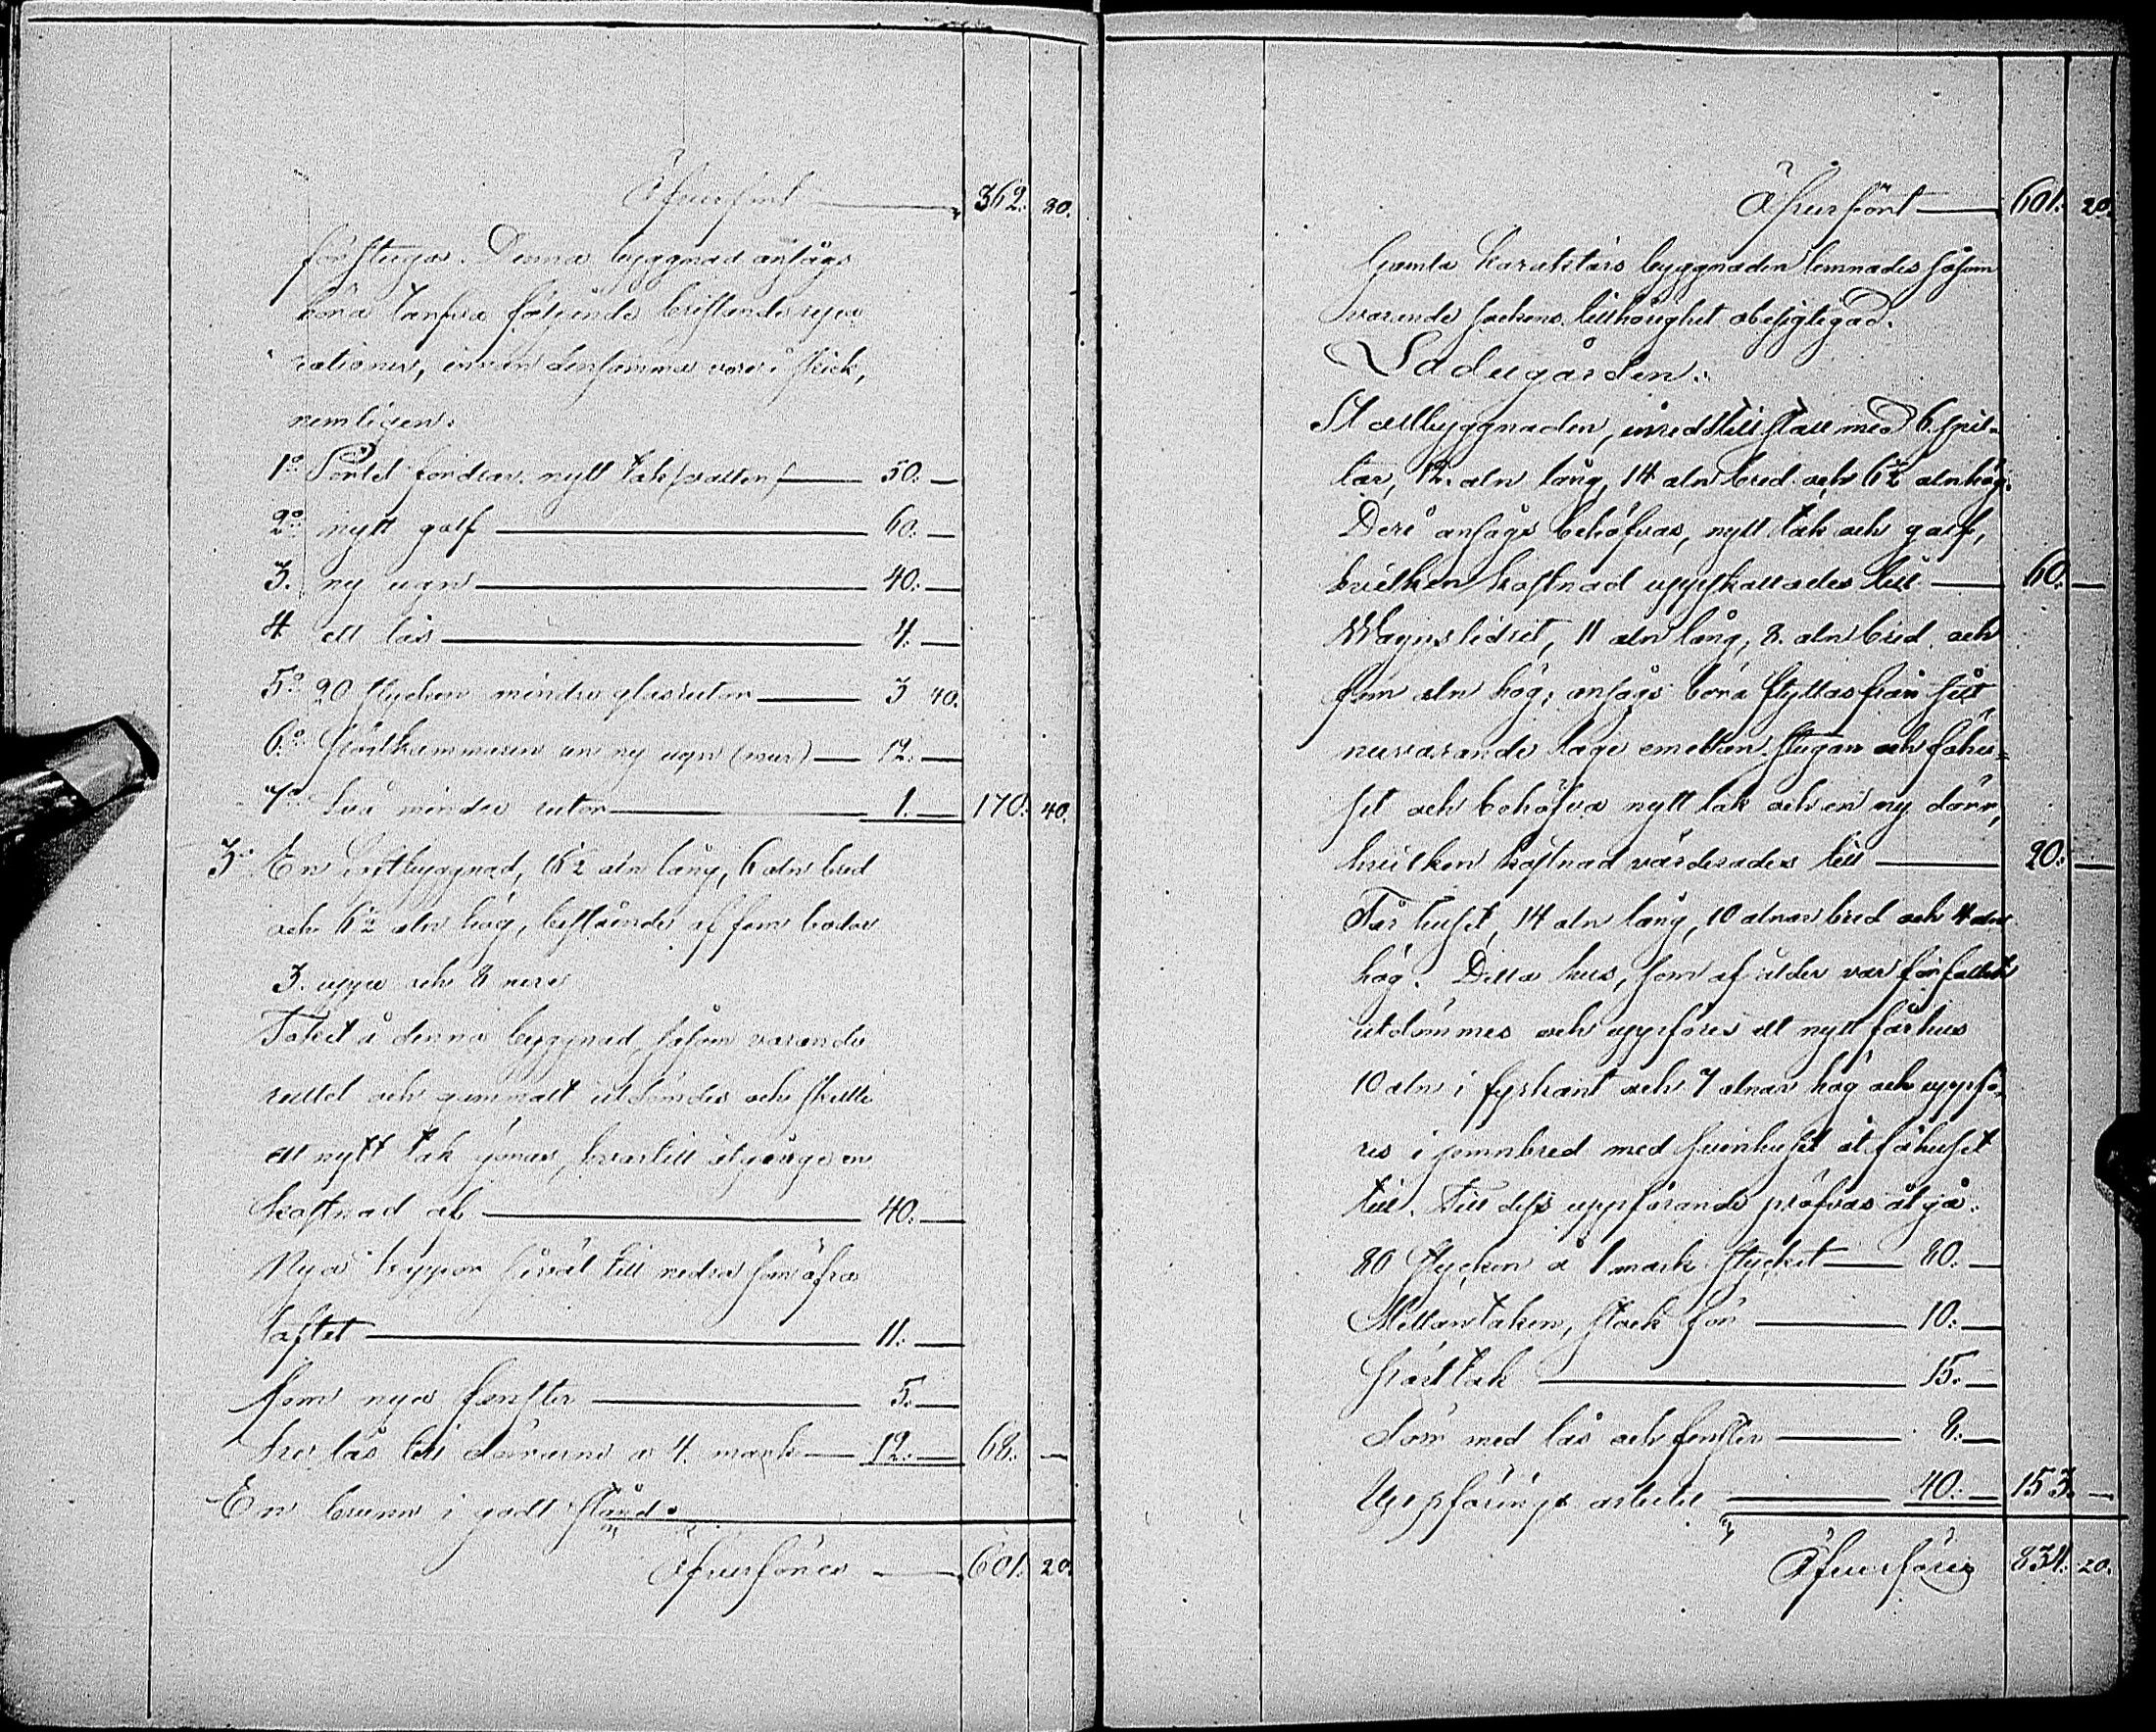 Öfverfördt 362. 80.
förstuga. Denna byggnad ansågs
böra tarfva följande bristande repa
rationer, innan densamma vore i skick,
nemligen:
1:o Pörtet fordrar nytt tak (vatten) 50. —
2:o nytt golf 60. —
3. ny ugn 40. —
4 ett lås 4. —
5:o 20 stycken mindre glasrutor 3 40.
6:o en ny ugn (mur) 12. —
7:o två mindre rutor 1. — 170. 40.
3:o En Loftbyggnad, 16½ aln lång, 6 aln bred
och 6½ aln hög, bestående af fem bodar
3. uppe och 2 nere
Taket å denna byggnad såsom varande
ruttet och gammalt utdömdes och skulle
ett nytt tak göras, hvartill åtginge en
kostnad af 40. —
Nya trappor såväl till nedra som öfra
loftet 11. —
fem nya fenster 5. —
tre lås till dörrarne a 4. mark 12. — 68. —
En brunn i godt stånd.
Öfverföres 601. 20.
Öfverfördt 601. 20.
Gamla karaktärs byggnaden lemnades såsom
varande sockens tillhörighet obesigtigad.
Ladugården.
Stallbyggnaden, inredd till stall med 6. spil-
tar, 12. aln lång, 14 aln bred och 6½ aln hög.
Derå ansågs behöfvas, nytt tak och golf,
hvilken kostnad uppskattades till 60. —
Wagnslidret, 11 aln lång, 8. aln bred och
fem aln hög; ansågs böra flyttas från sitt
nuvarande läge emellan stugan och fähu-
set och behöfva nytt tak och en ny dörr,
hvilken kostnad värderades till 20. —
Fårhuset, 14 aln lång, 10 alnar bred och 4 aln
hög. Detta hus, som af ålder var förfallet
utdömmes och uppföres ett nytt fårhus
10 aln i fyrkant och 7 alnar hög och uppfö-
res i jemnbred med svinhuset åt fähuset
till. Till dess uppförande pröfvas åtgå:
80 stycken a 1 mark stycket 80. —
Mellantaken, stock för 10. —
15. —
dörr med lås och fenster 8. —
Uppförings arbetet 40. — 153. —
Öfverföres 834. 20.